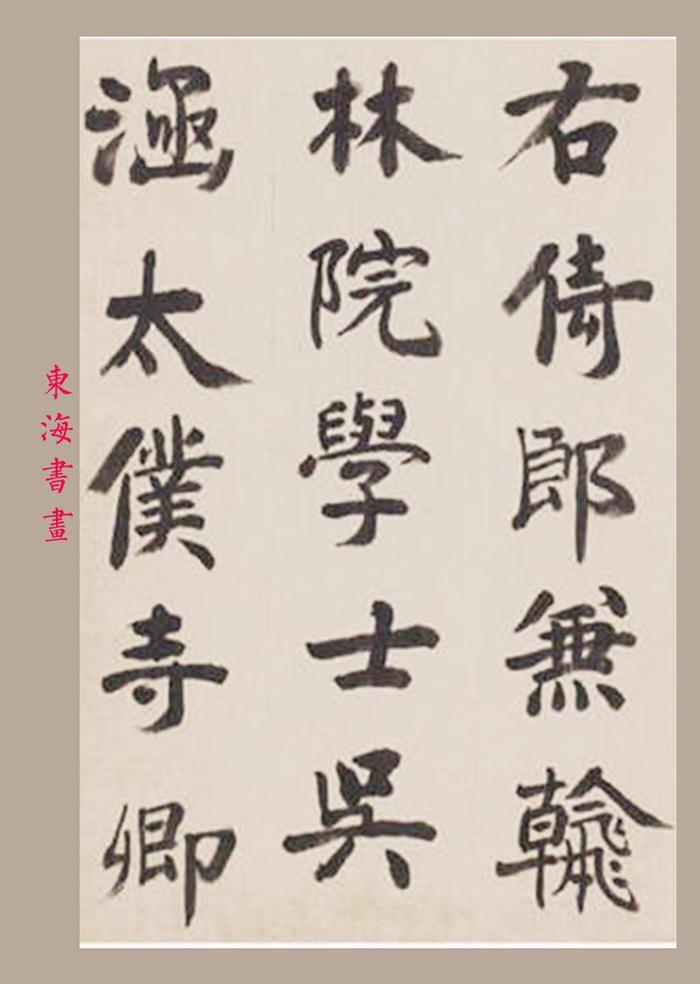 右倚郎兼翰
林院學士吳
涵太僕寺卿
東海書畫